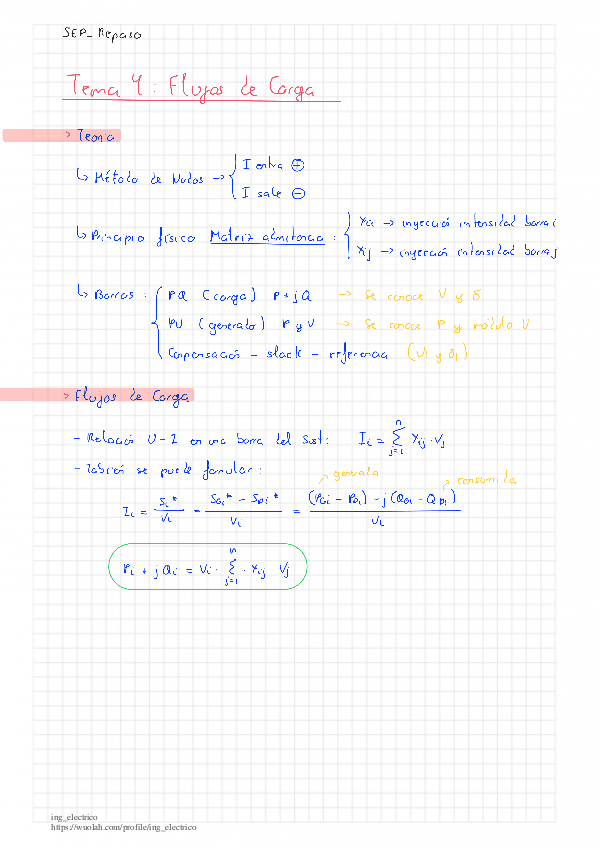 SEP_Repaso
Tema 4: Flujos de Carga
> Teoria
↳ Método de Nudos → { I entra ⊕
I sale ⊖
↳ Principio físico Matriz admitancia : { Yii → inyección intensidad barra i
Yij → inyección intensidad barra j
↳ Barras : { PQ (carga) P + jQ → Se conoce V y δ
PV (generato) P y V → Se conoce P y módulo V
Compensación - slack - referencia (V1 y δ1)
> Flujos de Carga
- Relación U-I en una barra del Sist: Ii = Σ(j=1, n) Yij · Vj
- También se puede formular:
generada
consumida
Ii = Si* / Vi = (SGi* - SDi*) / Vi = ((PGi - PDi) - j(QGi - QDi)) / Vi
Pi + jQi = Vi · Σ(j=1, n) · Yij Vj
ing_electrico
https://wuolah.com/profile/ing_electrico